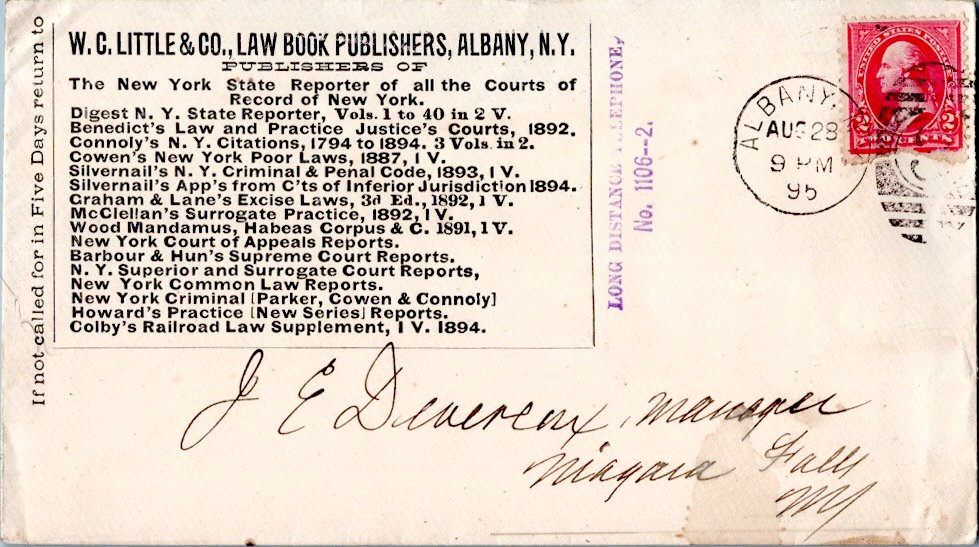 If not called for in Five Days return to
W. C. LITTLE & CO., LAW BOOK PUBLISHERS, ALBANY, N.Y.
PUBLISHERS OF
The New York State Reporter of all the Courts of
Record of New York.
Digest N. Y. State Reporter, Vols. 1 to 40 in 2 V.
Benedict's Law and Practice Justice's Courts, 1892.
Connoly's N. Y. Citations, 1794 to 1894. 3 Vols. in 2.
Cowen's New York Poor Laws, 1887, 1 V.
Silvernail's N. Y. Criminal & Penal Code, 1893, 1 V.
Silvernail's App's from C'ts of Inferior Jurisdiction 1894.
Graham & Lane's Excise Laws, 3d Ed., 1892, 1 V.
McClellan's Surrogate Practice, 1892, 1 V.
Wood Mandamus, Habeas Corpus & C. 1891, 1 V.
New York Court of Appeals Reports.
Barbour & Hun's Supreme Court Reports.
N. Y. Superior and Surrogate Court Reports,
New York Common Law Reports.
New York Criminal [Parker, Cowen & Connoly]
Howard's Practice [New Series] Reports.
Colby's Railroad Law Supplement, 1 V. 1894.
LONG DISTANCE TELEPHONE,
No. 1106--2.
ALBANY,
AUG 28
9 PM
95
UNITED STATES POSTAGE
2 2
J E Devereux, Manager
Niagara Falls
NY